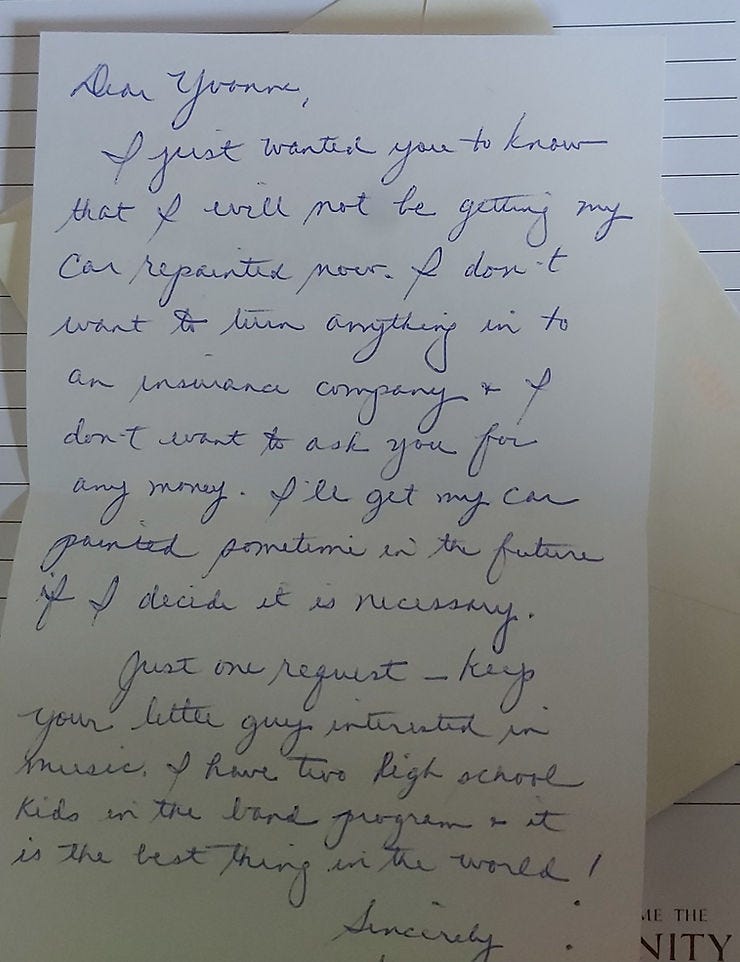 Dear Yvonne,
I just wanted you to know
that I will not be getting my
car repainted now. I don't
want to turn anything in to
an insurance company & I
don't want to ask you for
any money. I'll get my car
painted sometime in the future
if I decide it is necessary.
Just one request – keep
your little guy interested in
music. I have two high school
kids in the band program & it
is the best thing in the world!
Sincerely
ME THE
NITY